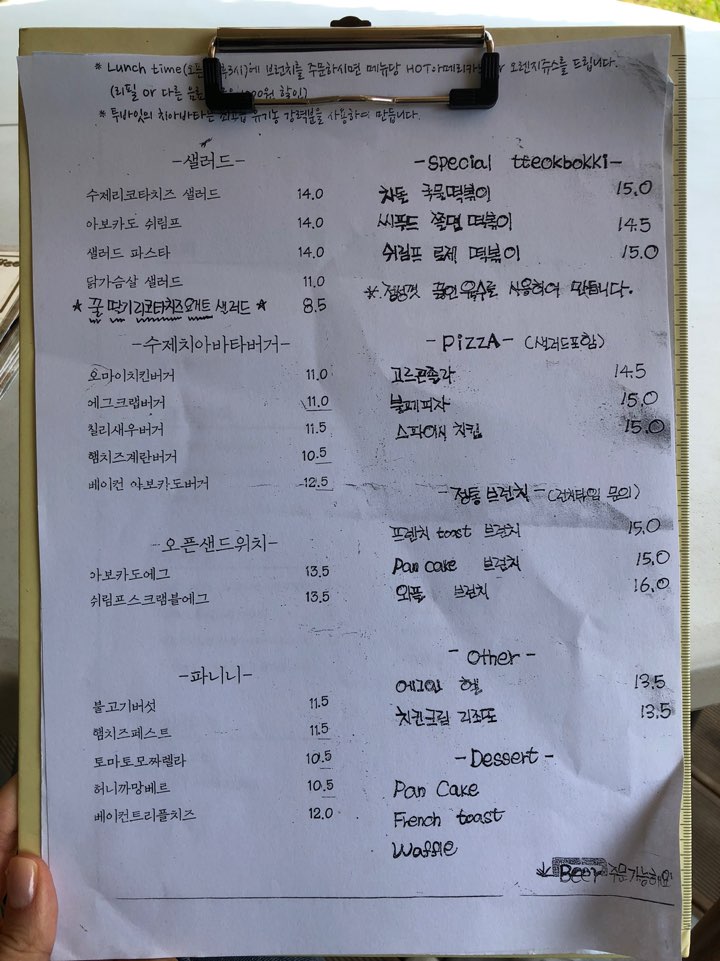 * Lunch time(오픈 3시)에 브런치를 주문하시면 메뉴당 HOT아메리카노 or 오렌지쥬스를 드립니다.
(리필 or 다른 음료 할인)
* 투바잇의 치아바타는 최고급 유기농 강력분을 사용하여 만듭니다.
-샐러드-
수제리코타치즈 샐러드 14.0
아보카도 쉬림프 14.0
샐러드 파스타 14.0
닭가슴살 샐러드 11.0
★ 꿀 딴기 리코타치즈요개트 샐러드 ★ 8.5
-수제치아바타버거-
오마이치킨버거 11.0
에그크랩버거 11.0
칠리새우버거 11.5
햄치즈계란버거 10.5
베이컨 아보카도버거 12.5
-오픈샌드위치-
아보카도에그 13.5
쉬림프스크램블에그 13.5
-파니니-
불고기버섯 11.5
햄치즈페스트 11.5
토마토모짜렐라 10.5
허니까망베르 10.5
베이컨트리플치즈 12.0
-Special tteokbokki-
차돌 국물떡볶이 15.0
씨푸드 쫄면 떡볶이 14.5
쉬림프 로제 떡볶이 15.0
※ 정성껏 끓인 육수로 사용하여 만듭니다.
-PIZZA- (샐러드포함)
고르곤졸라 14.5
불페피자 15.0
스파이시 치킨 15.0
-정통 브런치- (런치타임 문의)
프렌치 toast 브런치 15.0
Pan cake 브런치 15.0
와플 브런치 16.0
-Other-
에그인 헬 13.5
치킨크림 리조또 13.5
-Dessert-
Pan Cake
French toast
Waffle
Beer 주문가능해요